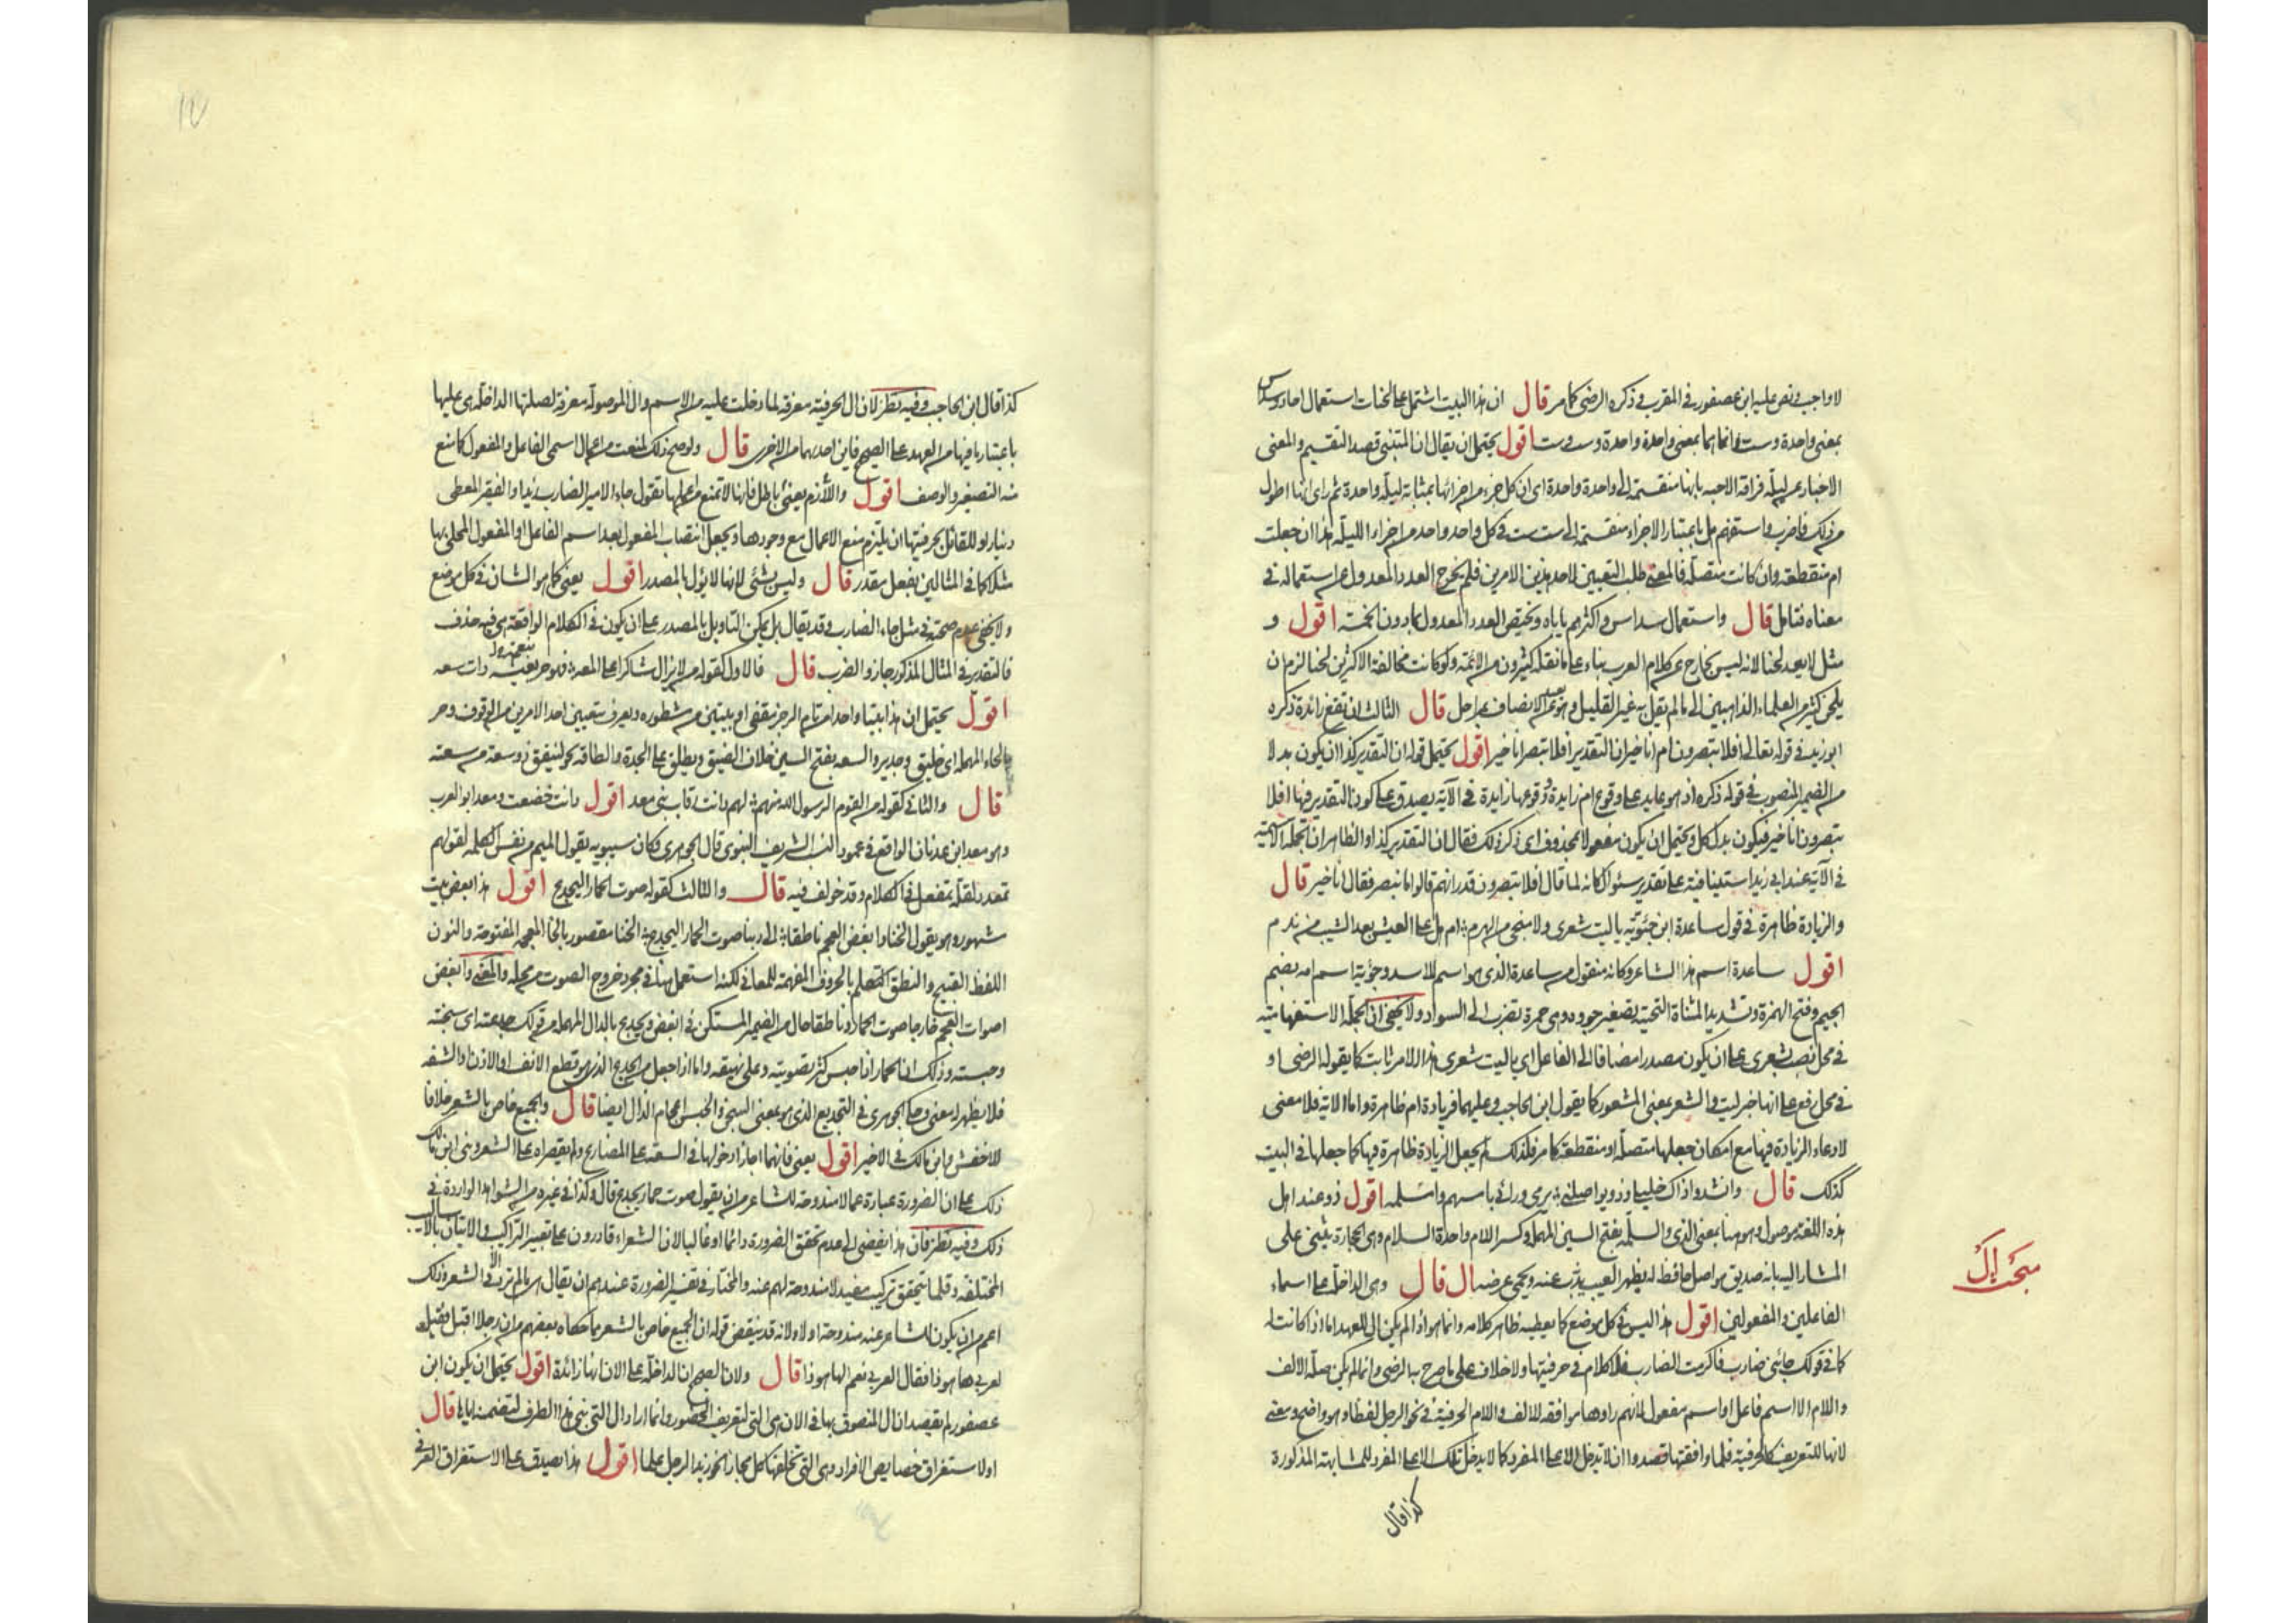 لا واجب ونص عليه ابن عصفور في المقرب وذكره الرضى كما مر قال ان هذا البيت اشتمل على لحنات استعمال احاد وسداس
بمعنى واحدة وست وانما هما بمعنى واحدة واحدة وست وست اقول يحتمل ان يقال ان المتنبي قصد التقسيم والمعنى
الاخبار عن ليلة فراقه الاحبه بانها منقسمة الى واحدة واحدة اى ان كل جزء من اجزائها بمثابة ليلة واحدة ثم راى انها اطول
من ذلك فاضرب واستفهم هل باعتبار الاجزاء منقسمة الى ست ست في كل واحد واحد من اجزاء الليلة هذا ان جعلت
ام منقطعة وان كانت متصلة فالمعنى طلب التعيين لاحد هذين الامرين فلم يخرج العدد المعدول عن استعماله في
معناه فتامل قال واستعمال سداس واكثرهم ياباه ويختص العدد المعدول بما دون الخمسة اقول و
مثل لا يعد لحنا لانه ليس بخارج عن كلام العرب بناء على ما نقله كثيرون من الائمة ولو كانت مخالفة الاكثرين لحنا لزم ان
يلحن كثير من العلماء الذاهبين الى ما لم يقل به غير القليل وهو بعيد عن الانصاف بمراحل قال الثالث ان تقع زائدة ذكره
ابو زيد في قوله تعالى افلا تبصرون ام انا خير ان التقدير افلا تبصرون انا خير اقول يحتمل قوله ان التقدير كذا ان يكون بدلا
من الضمير المنصوب في قوله ذكره اذ هو عايد على وقوع ام زايدة ووقوعها زايدة في الآية يصدق على كون التقدير فيها افلا
تبصرون انا خير فيكون بدل كل ويحتمل ان يكون مفعولا لمحذوف اى ذكر ذلك فقال ان التقدير كذا والظاهر ان الجملة الاسمية
في الآية عند ابى زيد استينافية على تقدير سئوال كانه لما قال افلا تبصرون قدر انهم قالوا ما نبصر فقال انا خير قال
والزيادة ظاهرة في قول ساعدة ابن جئوية يا ليت شعرى ولا منجى من الهرم ام هل على العيش بعد الشيب من ندم
اقول ساعدة اسم هذا الشاعر وكانه منقول من ساعدة الذى هو اسم للاسد وجؤية اسم امه بضم
الجيم وفتح الهمزة وتشديد المثناة التحتية تصغير جووه وهى حمرة تضرب الى السواد ولا يخفى ان الجملة الاستفهامية
في محل نصب بشعرى على ان يكون مصدرا مضافا الى الفاعل اى يا ليت شعرى هذا الامر ثابت كما يقوله الرضى او
في محل رفع على انها خبر ليت والشعر بمعنى المشعور كما يقول ابن الحاجب وعليهما فزيادة ام ظاهرة واما الاية فلا معنى
لادعاء الزيادة فيها مع امكان جعلها متصلة او منقطعة كما مر فلذلك لم يجعل الزيادة ظاهرة فيها كما جعلها في البيت
كذلك قال وانشدوا ذاك خليلى وذو يواصلنى يرمى ورائى بامسهم وامسلمه اقول ذو عند اهل
هذه اللغة موصول وهو هنا بمعنى الذى والسلمة بفتح السين المهملة وكسر اللام واحدة السلام وهى الحجارة يثنى على
المشار اليه بانه صديق مواصل حافظ له بظهر الغيب يذب عنه ويحمى عرضه ال قال وهى الداخلة على اسماء
الفاعلين والمفعولين اقول هذا ليس في كل موضع كما يعطيه ظاهر كلامه وانما هو اذا لم يكن ال للعهد اما اذا كانت له
كما في قولك جائنى ضارب فاكرمت الضارب فلا كلام في حرفيتها ولا خلاف على ما صرح به الرضى وانما لم يكن صلة الالف
واللام الا اسم فاعل او اسم مفعول لانهم راوها موافقه للالف واللام الحرفية في نحو الرجل لفظا وهو واضح ومعنى
لانها للتعريف كالحرفية فلما وافقتها قصدوا ان لا تدخل الا على المفرد كما لا يدخل تلك الا على المفرد للمشابهة المذكورة
كذا قال
مبحث ال
كذا قال ابن الحاجب وفيه نظر لان ال الحرفية معرفة لما دخلت عليه من الاسم وال الموصولة معرفة لصلتها الداخلة هى عليها
باعتبار ما فيها من العهد على الصحيح فاين احديهما من الاخرى قال ولو صح ذلك لمنعت من اعمال اسمى الفاعل والمفعول كما منع
منه التصغير والوصف اقول واللازم يعنى باطل فانها لا تمنع من اعمالها تقول جاء الامير الضارب زيدا والفقير المعطى
دينارا وللقائل بحرفيتها ان يلتزم منع الاعمال مع وجودها ويجعل انتصاب المفعول بعد اسم الفاعل او المفعول المحلى بها
مثلا كما في المثالين بفعل مقدر قال وليس بشئ لانها لا يؤل بالمصدر اقول يعنى كما هو الشان في كل موضع
ولا يخفى عدم صحته في مثل جاء الضارب وقد يقال بل يمكن التاويل بالمصدر على ان يكون في الكلام الواقعة هى فيه حذف
فالتقدير في المثال المذكور جاز والضرب قال فالاول كقوله من لا يزال شاكرا على المعه فهو حر بعيشة ذات سعه
اقول يحتمل ان هذا بيتا واحدا من تام الرجز مقفى او بيتين من مشطوره ويعرف بتعيين احد الامرين من الوقوف وحر
بالحاء المهملة اى خليق وجدير والسعه بفتح السين خلاف الضيق ويطلق على الجدة والطاقه نحو لينفق ذو سعة من سعته
قال والثانى كقوله من القوم الرسول الله منهم لهم دانت رقاب بنى معد اقول دانت خضعت ومعد ابو العرب
وهو معد ابن عدنان الواقع في عمود النسب الشريف النبوى قال الجوهرى وكان سيبويه يقول الميم من نفس الكلمه لقولهم
تمعدد لقلة تمفعل في الكلام وقد خولف فيه قال والثالث كقوله صوت الحمار اليجدع اقول هذا بعض بيت
مشهور وهو يقول الخنا وابغض العجم ناطقا الى ربنا صوت الحمار اليجدع الخنا مقصور بالخاء المعجمه المفتوحة والنون
اللفظ القبيح والنطق التكلم بالحروف المفهمة للمعانى لكنه استعمل هنا في مجرد خروج الصوت من محله والمعنى وابغض
اصوات العجم خارجا صوت الحمار وناطقا حال من الضمير المستكن في ابغض ويجدع بالدال المهملة من قولك جدعته اى سجنته
وحبسته وذلك ان الحمار اذا حبس كثر تصويته وعلى نهيقه واما اذا جعل من الجدع الذى هو قطع الانف او الاذن او الشفه
فلا يظهر له معنى وحكى الجوهرى في التجديع الذى هو بمعنى السجن والحبس اعجام الذال ايضا قال والجميع خاص بالشعر خلافا
للاخفش وابن مالك في الاخير اقول يعنى فانهما اجازا دخولها في السعة على المضارع ولم يقصراه على الشعر وبنى ابن مالك
ذلك على ان الضرورة عبارة عما لا مندوحة للشاعر من ان يقول صوت حمار يجدع قال وكذا في غيره من الشواهد الواردة في
ذلك وفيه نظر فان هذا يفضى الى عدم تحقق الضرورة دائما او غالبا لان الشعراء قادرون على تغيير التراكيب والاتيان بالاساليب
المختلفة وقلما يتحقق تركيب مفيد لا مندوحة لهم عنه والمختار في تفسير الضرورة عندهم ان يقال هى ما لم ترد الا في الشعر وذلك
اعم من ان يكون للشاعر عنه مندوحة او لا ولانه قد ينقض قوله ان الجميع خاص بالشعر بما حكاه بعضهم من ان رجلا اقبل فقيل
لعربى ها هوذا فقال العربى نعم الها هوذا قال ولان الصحيح ان الداخلة على الان انها زائدة اقول يحتمل ان يكون ابن
عصفور لم يقصد ان ال المنصوق بها في الان هى التى لتعريف الحضور وانما اراد ال التى بنى هذا الظرف لتضمنه اياها قال
او لاستغراق خصايص الافراد وهى التى تخلفها كل مجازا نحو زيد الرجل علما اقول هذا يصدق على الاستغراق العرفى